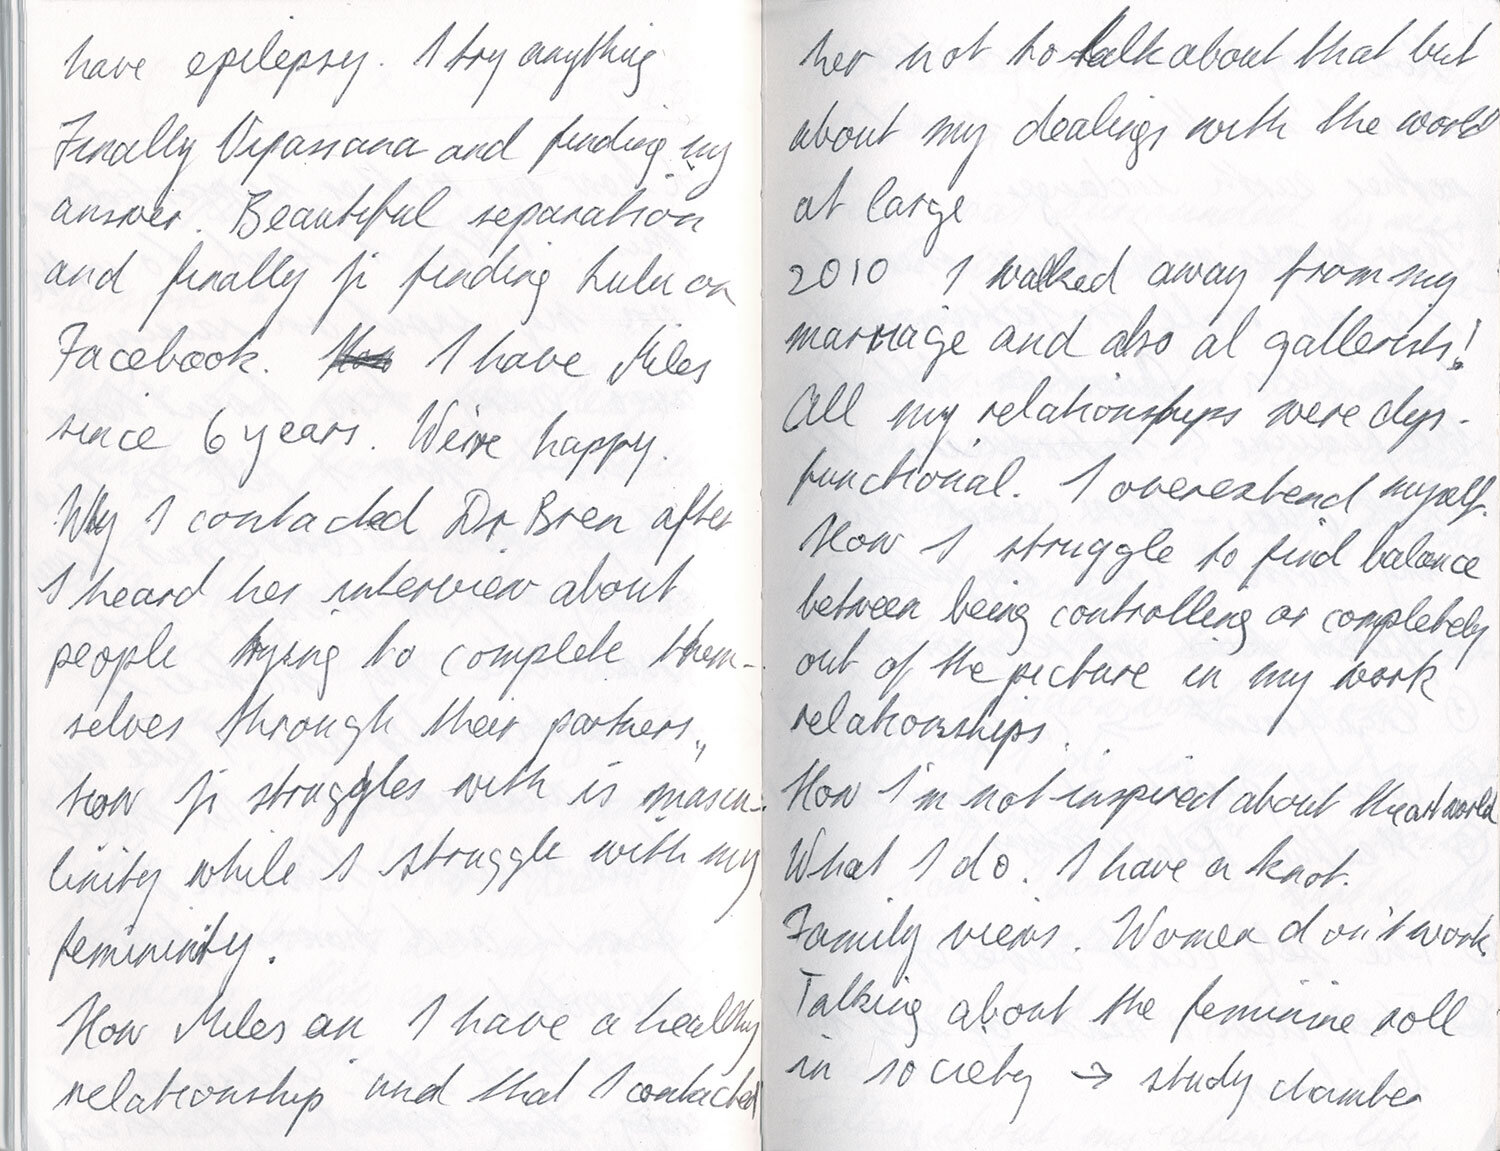 have epilepsy. I try anything
Finally Vipassana and finding my
answer. Beautiful separation
and finally ji finding Lulu on
Facebook. I have Miles
since 6 years. We're happy.
Why I contacted Dr Bren after
I heard her interview about
people trying to complete them-
selves through their partners,,
how ji struggles with is mascu-
linity while I struggle with my
femininity.
How Miles an I have a healthy
relationship und that I contacted
her not to talk about that but
about my dealings with the world
at large
2010 I walked away from my
marriage and also al gallerists!
All my relationships were dys-
functional. I overextend myself.
How I struggle to find balance
between being controlling or completely
out of the picture in my work
relationships.
How I'm not inspired about the art world
What I do. I have a knot.
Family views. Women don't work.
Talking about the feminine roll
in society → study chamber